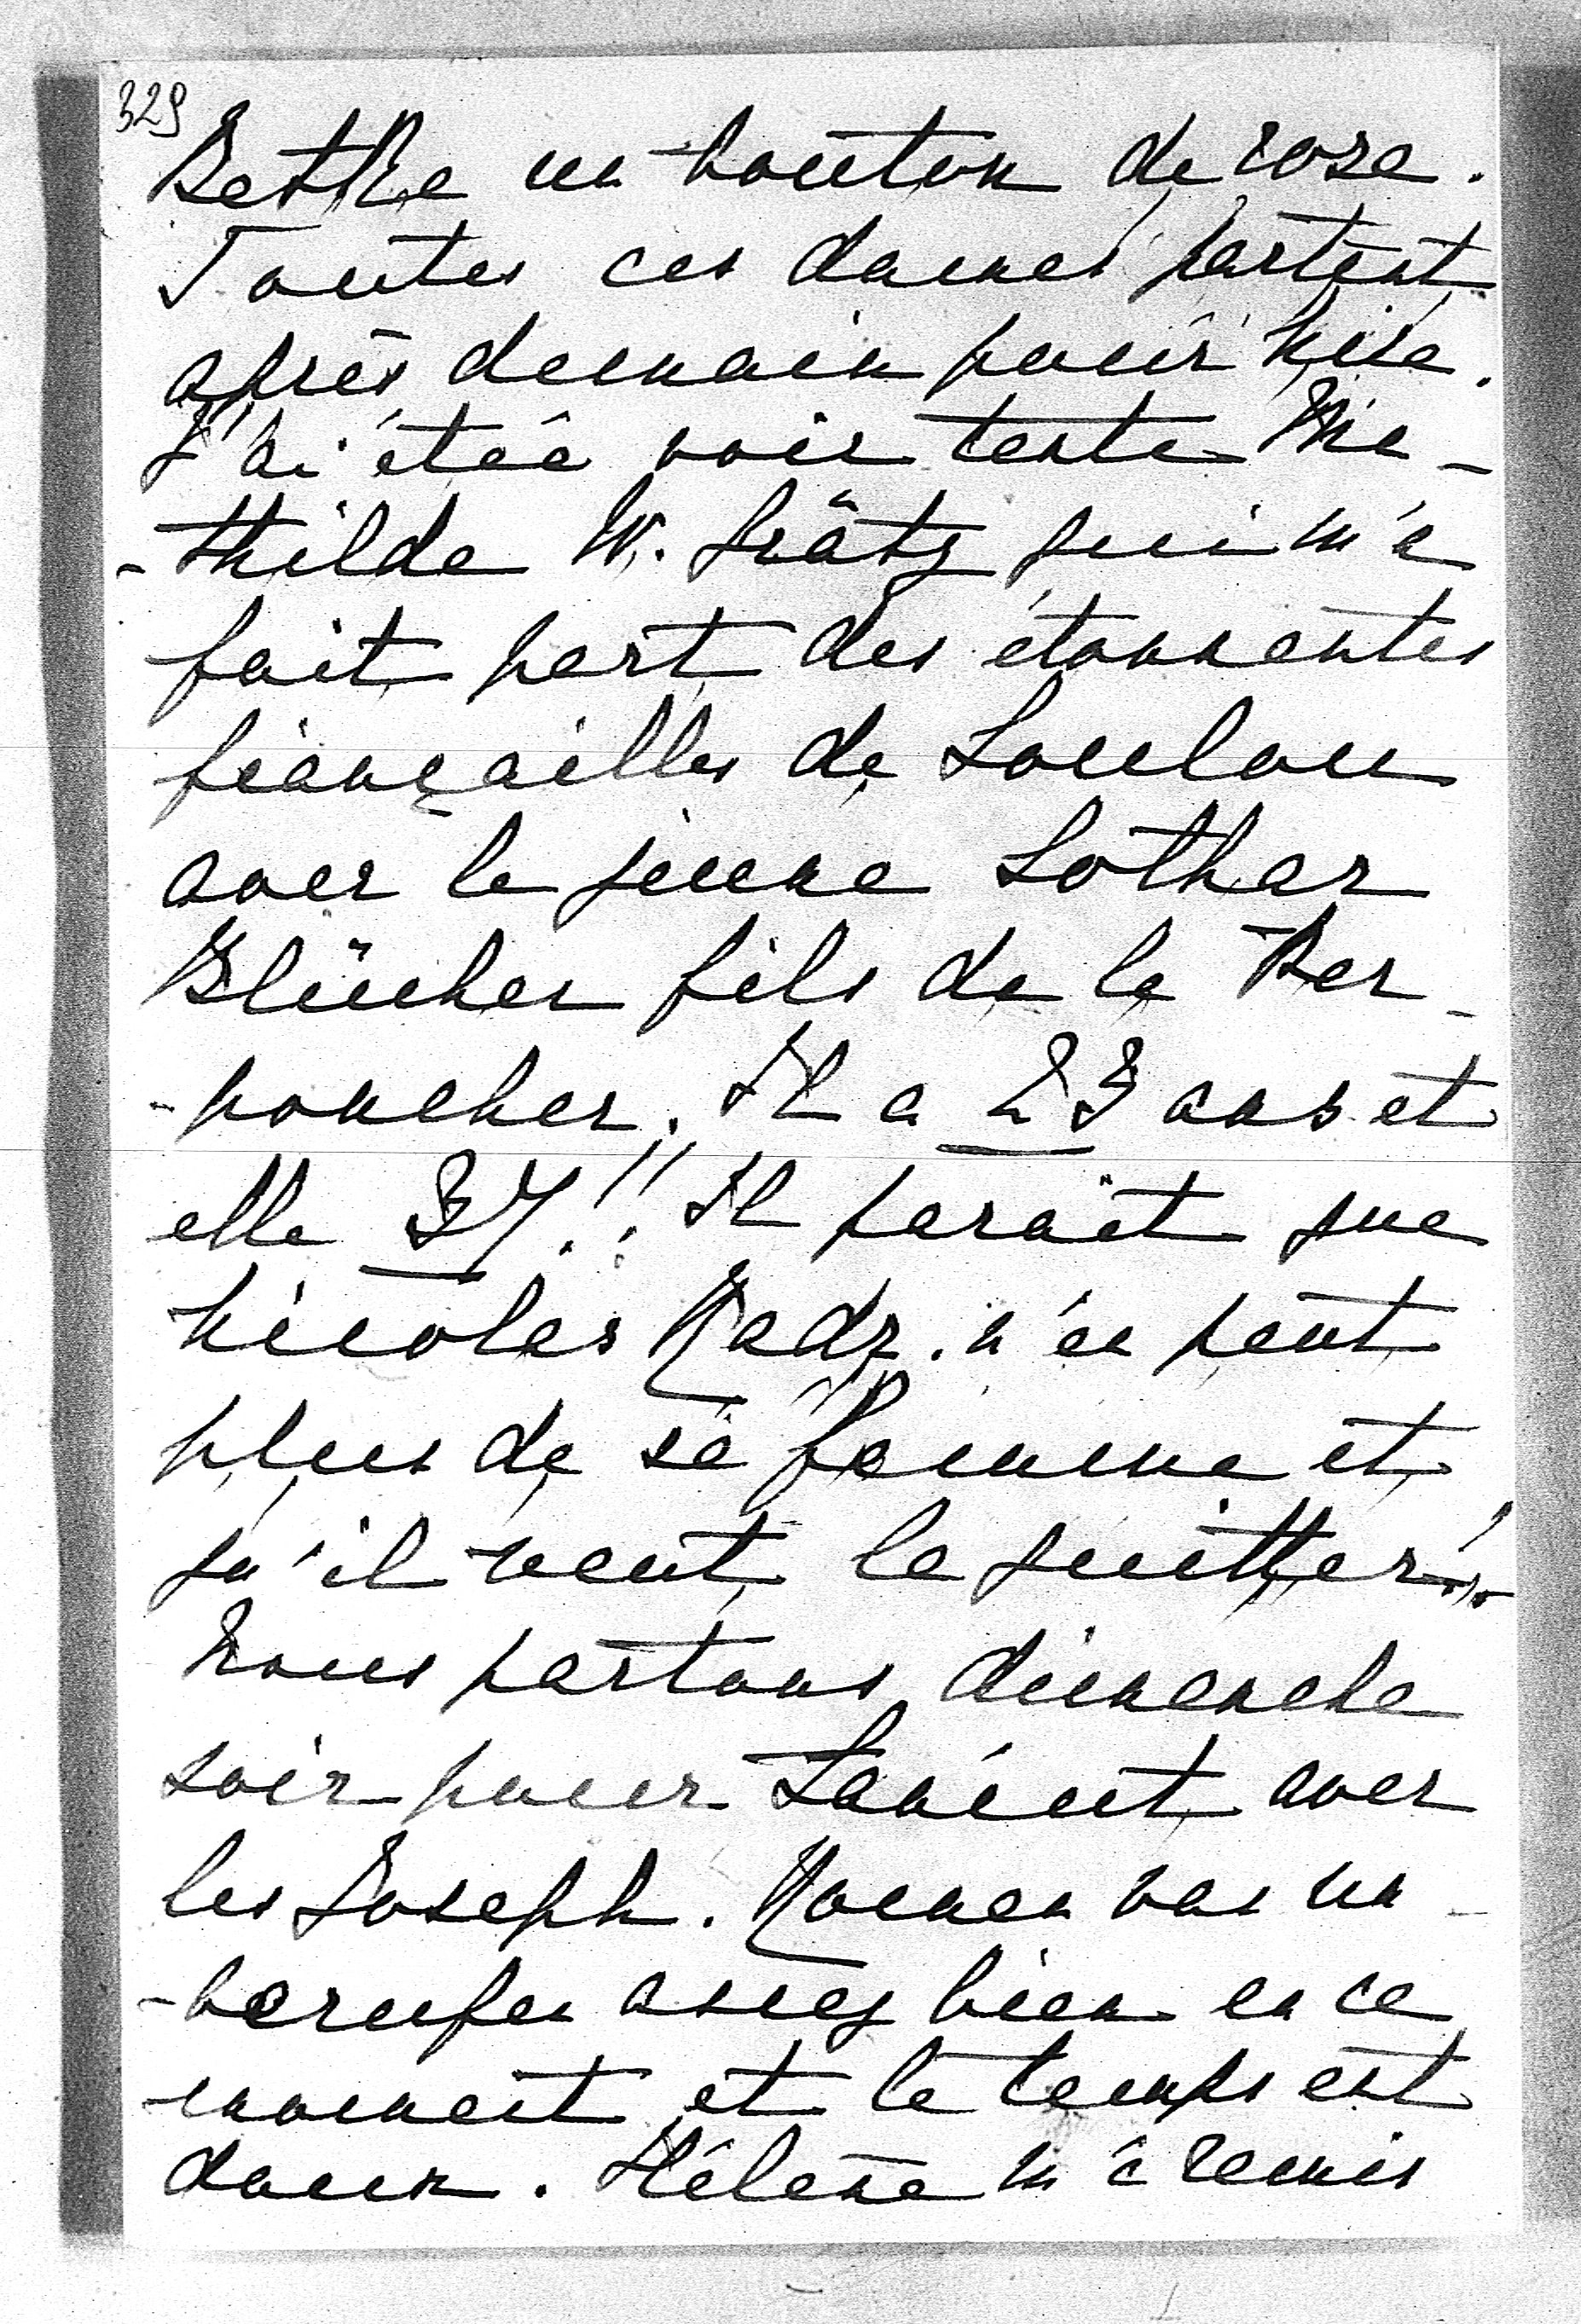 329
Bethe un bouton de rose.
Toutes ces dames partent
après demain pour Nice.
J'ai étéé voir tante Ma-
-thilde W. Grätz qui m'a
fait part des étonnantes
fiançailles de Loulou
avec le jeune Lothar
Blücher fils de la Per-
-poncher. Il a 23 ans et
elle 37!! Il parait que
Nicolas Radz. n'en peut
plus de sa femme et
qu'il veut la quitter!..
Nous partons dimanche
soir pour Lancut avec
les Joseph. Maman vas un-
-berufen assez bien en ce
moment et le temps est
doux. Hélène m'a remis